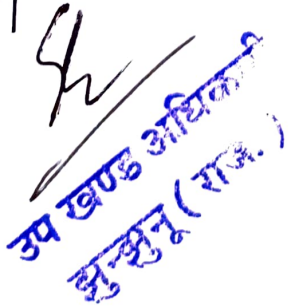 उप खण्ड अधिकारी
झुन्झुनू ( राज. )